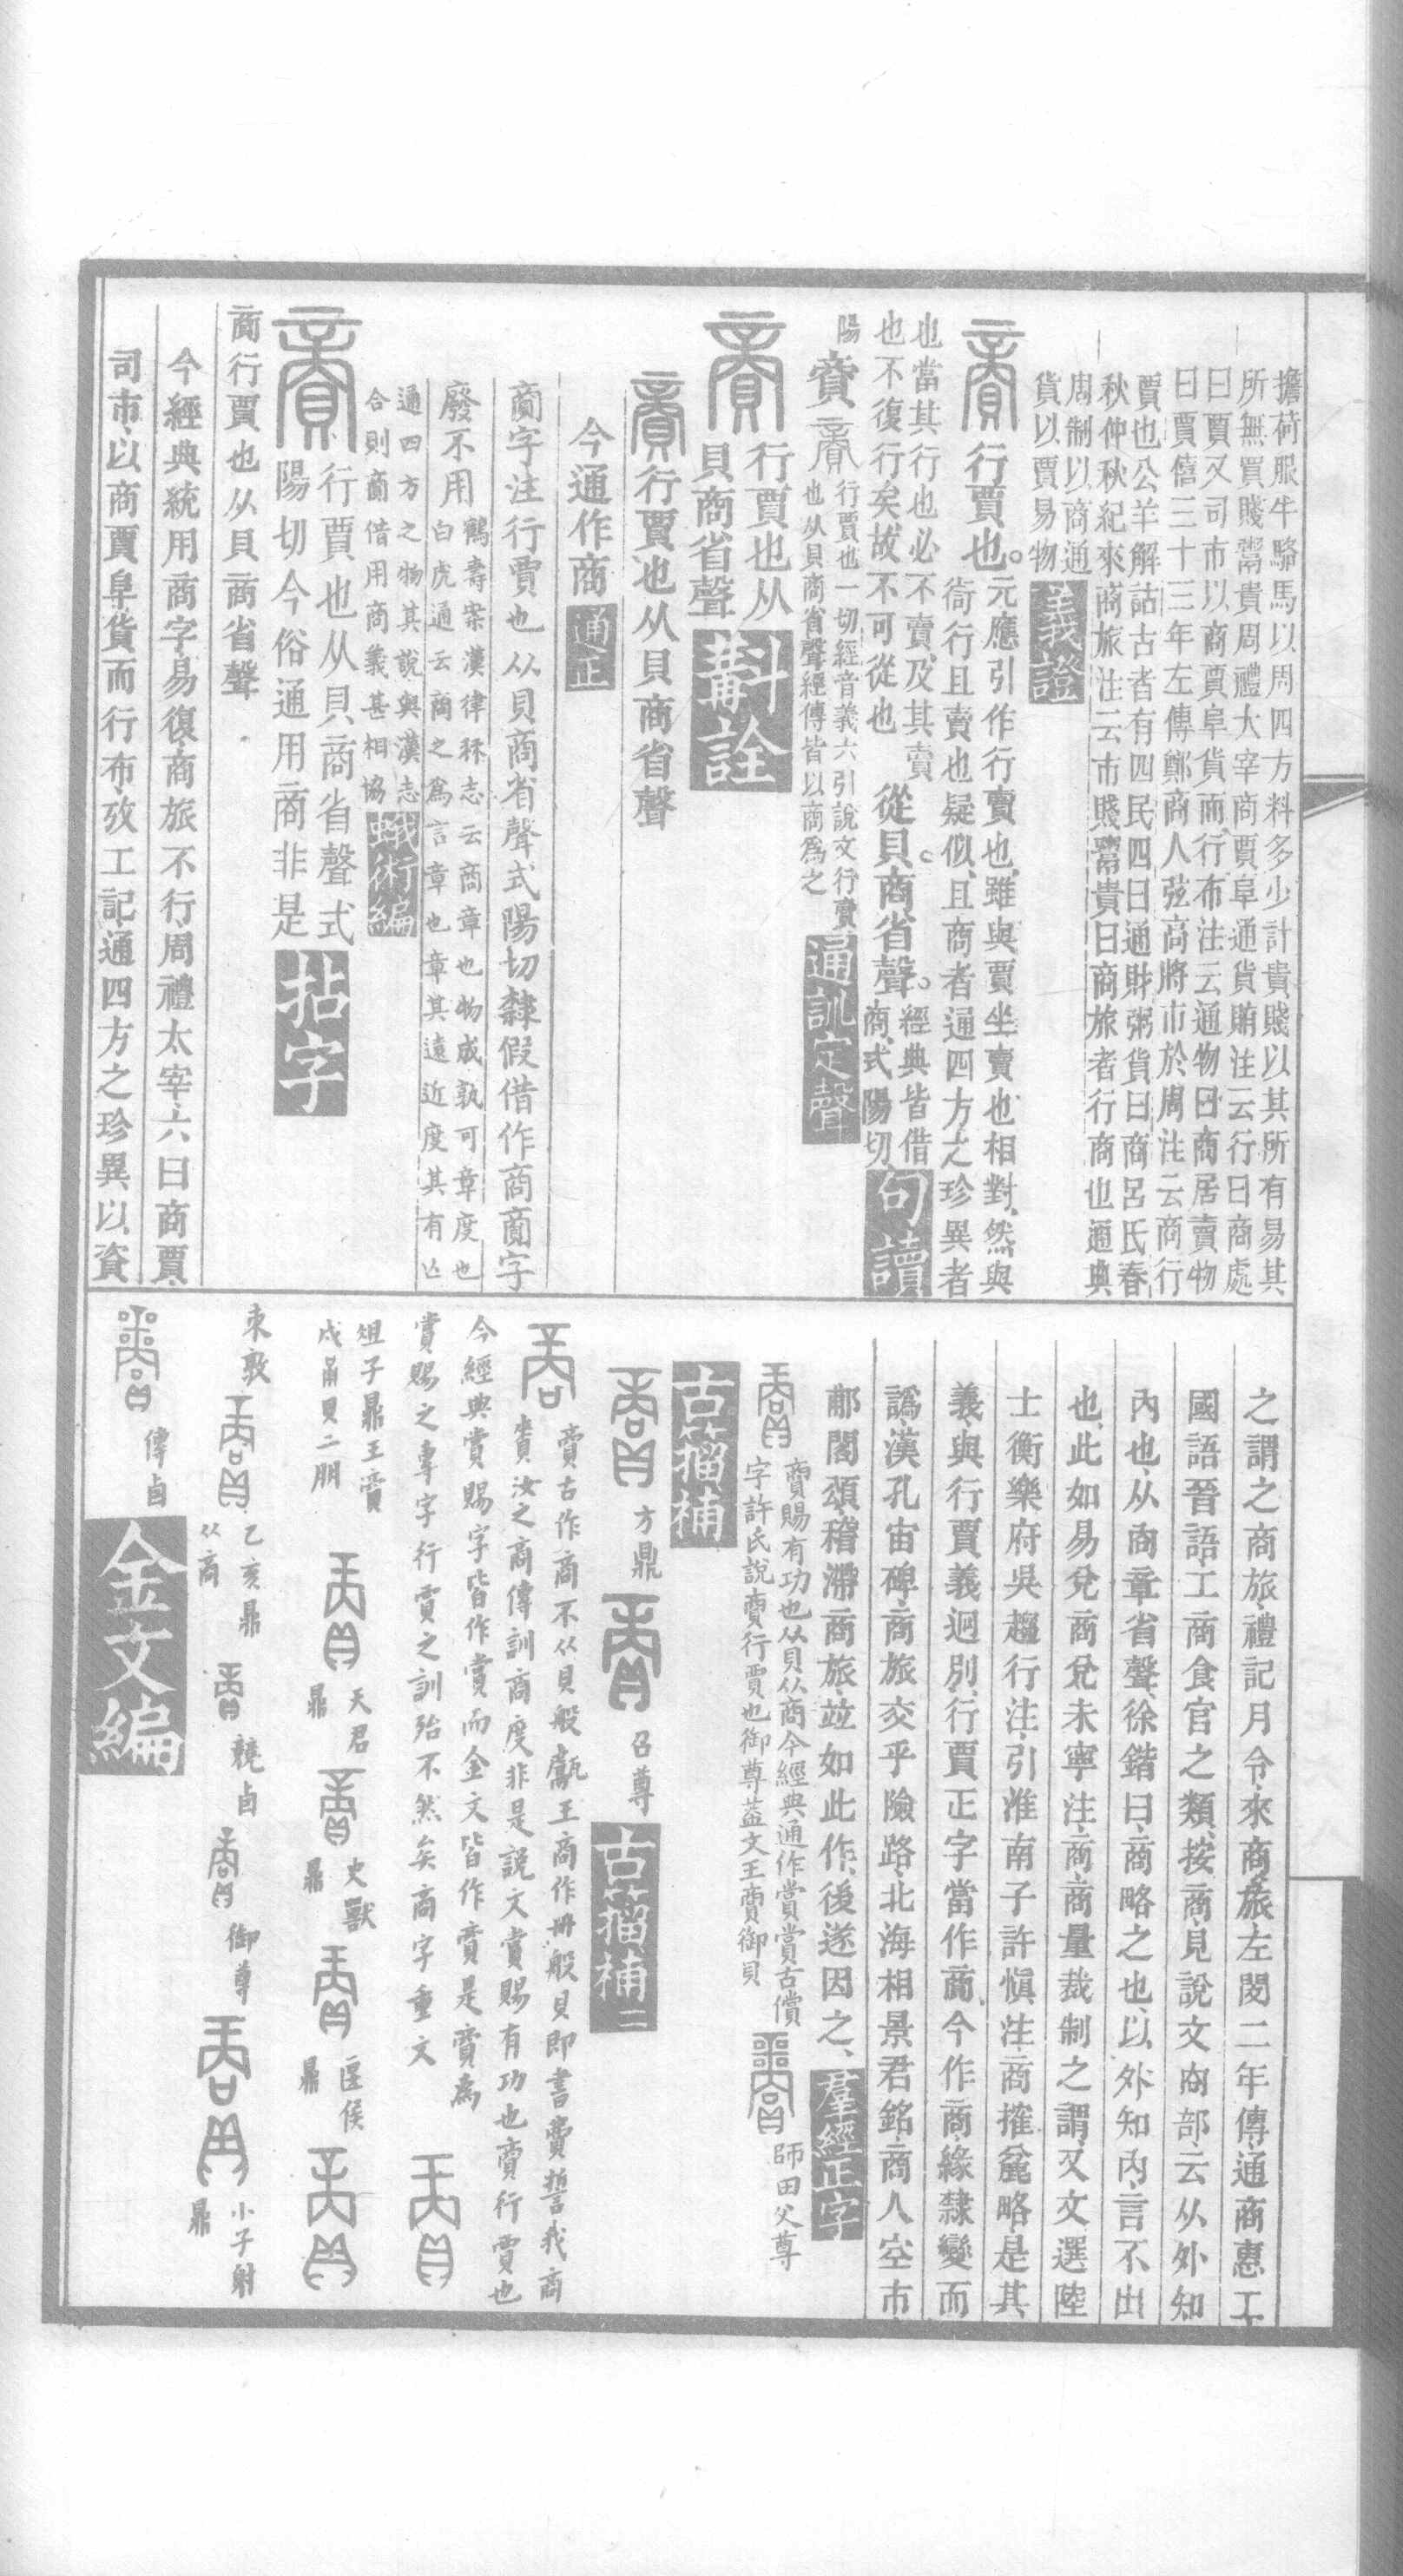 擔荷服牛駱馬以周四方料多少計貴賤以其所有易其
所無買賤鬻貴周禮大宰商賈阜通貨賄注云行曰商處
曰賈又司市以商賈阜貨而行布注云通物曰商居賣物
曰賈僖三十三年左傳鄭商人弦高將市於周注云商行
賈也公羊解詁古者有四民四曰通財粥貨曰商呂氏春
秋仲秋紀來商旅注云市賤鬻貴曰商旅者行商也通典
周制以商通
貨以賈易物
義證
行賈也。
元應引作行賣也雖與賈坐賣也相對然與
衒行且賣也疑似且商者通四方之珍異者
也當其行也必不賣及其賣
也不復行矣故不可從也
從貝。商省聲。
經典皆借
商式陽切
句讀
陽
賣
行賈也一切經音義六引說文行賣
也从貝商省聲經傳皆以商爲之
通訓定聲
行賈也从
貝商省聲
斠詮
行賈也从貝商省聲
今通作商
通正
商字注行賈也从貝商省聲式陽切隸假借作商商字
廢不用
鶴壽案漢律秝志云商章也物成孰可章度也
白虎通云商之爲言章也章其遠近度其有亡
通四方之物其說與漢志
合則商借用商義甚相協
蛾術編
行賈也从貝商省聲式
陽切今俗通用商非是
拈字
商行賈也从貝商省聲
今經典統用商字易復商旅不行周禮太宰六曰商賈
司市以商賈阜貨而行布攷工記通四方之珍異以資
之謂之商旅禮記月令來商旅左閔二年傳通商惠工
國語晉語工商食官之類按商見說文㕯部云从外知
內也从㕯章省聲徐鍇曰商略之也以外知內言不出
也此如易兌商兌未寧注商商量裁制之謂又文選陸
士衡樂府吳趨行注引淮南子許愼注商搉麄略是其
義與行賈義迥別行賈正字當作商今作商緣隸變而
譌漢孔宙碑商旅交乎險路北海相景君銘商人空市
郙閣頌稽滯商旅竝如此作後遂因之
羣經正字
賞賜有功也从貝从商今經典通作賞賞古償
字許氏說賣行賈也御尊葢文王賞御貝
師田父尊
古籀補
方鼎
召尊
古籀補二
賣古作商不从貝般甗王商作冊般貝卽書費誓我商
賚汝之商傳訓商度非是說文賞賜有功也賣行賈也
今經典賞賜字皆作賞而金文皆作賣是賣爲
賞賜之專字行賈之訓殆不然矣商字重文
俎子鼎王賣
戍甬貝二朋
天君
鼎
史獸
鼎
匽侯
鼎
束敦
乙亥鼎
从商
競卣
御尊
小子射
鼎
傳卣
金文編